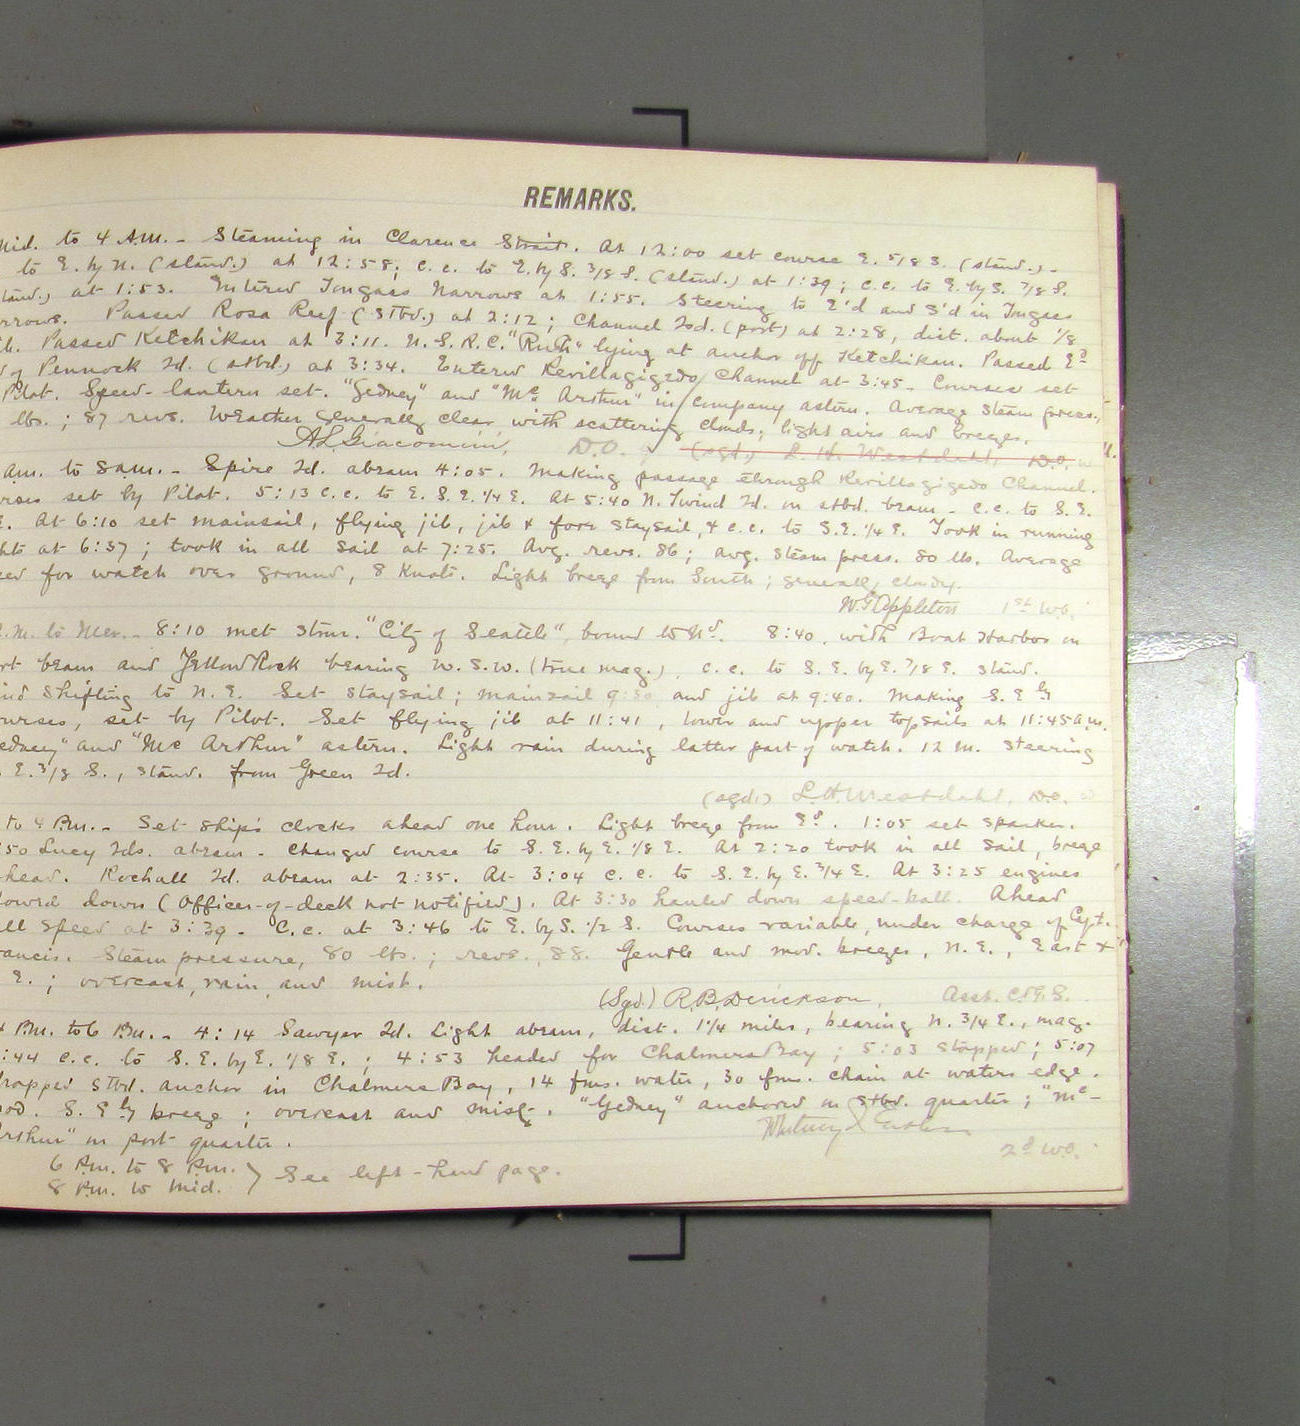 REMARKS.
Mid. to 4 A.M. - Steaming in Clarence Strait. At 12:00 set course E. 5/8 S. (stand.) -
to E. by N. (stand.) at 12:58; c.c. to E. by S. 3/8 S. (stand.) at 1:39; c.c. to E. by S. 7/8 S.
tand.) at 1:53. Entered Tongass Narrows at 1:55. Steering to E'd and S'd in Tongass
rrows. Passed Rosa Reef (Stbd.) at 2:12; Channel Id. (port) at 2:28, dist. about 1/8
Passed Ketchikan at 3:11. U.S.R.C. "Rush" lying at anchor off Ketchikan. Passed Ed
of Pennock Id. (stbd.) at 3:34. Entered Revillagigedo Channel at 3:45. Courses set
Pilot. Speed-lantern set. "Gedney" and "Mc Arthur" in company astern. Average steam press.,
lbs.; 87 revs. Weather generally clear with scattering clouds; light airs and breezes.
A.L. Giacomini, D.O. (sgd.) L. H. Westdahl, D.O.
Am. to 8 am. - Spire Id. abeam 4:05. Making passage through Revillagigedo Channel.
rses set by Pilot. 5:13 c.c. to E. S. E. 1/4 E. At 5:40 N. Twind Id. on stbd. beam - c.c. to S. E.
E. At 6:10 set mainsail, flying jib, jib & fore staysail, & c.c. to S.E. 1/4 E. Took in running
hts at 6:37; took in all sail at 7:25. Avg. revs. 86; avg. steam press. 80 lb. Average
eed for watch over ground, 8 Knots. Light breeze from South; generally cloudy.
W.G. Appleton 1st W.O.
A.M. to Mer. - 8:10 met stmr. "City of Seattle", bound to Nd. 8:40, with Boat Harbor on
ort beam and Yellow Rock bearing W.S.W. (true mag.), c.c. to S. E. by E. 7/8 E. stand.
ind shifting to N. E. Set staysail; mainsail 9:30 and jib at 9:40. Making S. E ly
ourses, set by Pilot. Set flying jib at 11:41, lower and upper topsails at 11:45 a.m.
Gedney" and "Mc Arthur" astern. Light rain during latter part of watch. 12 M. steering
E. 3/8 S., stand. from Green Id.
(sgd.) L. H. Westdahl, D.O.
to 4 P.M. - Set ship's clocks ahead one hour. Light breeze from Ed. 1:05 set spanker.
:50 Lucy Ids. abeam - changed course to S. E. by E. 1/8 E. At 2:20 took in all sail, breeze
head. Rachall Id. abeam at 2:35. At 3:04 c.c. to S. E. by E. 3/4 E. At 3:25 engines
lowed down (Officer-of-deck not notified). At 3:30 hauled down speed-ball. Ahead
ull speed at 3:39 - C.c. at 3:46 to E. by S. 1/2 S. Courses variable, under charge of Capt.
rancis. Steam pressure, 80 lbs.; revs., 88. Gentle and mod. breezes, N. E., East &
E.; overcast, rain, and mist.
(Sgd.) R.B. Derickson, Asst. C.&G.S.
4 P.M. to 6 P.M. - 4:14 Sawyer Id. Light abeam, dist. 1 1/4 miles, bearing N. 3/4 E., mag.
:44 c.c. to S. E. by E. 1/8 E.; 4:53 headed for Chalmers Bay; 5:03 stopped; 5:07
dropped stbd. anchor in Chalmers Bay, 14 fms. water, 30 fms. chain at waters edge.
mod. S. E ly breeze; overcast and misty. "Gedney" anchored on stbd. quarter; "Mc-
Arthur" on port quarter.
Whitney 2d W.O.
6 P.M. to 8 P.M. } See left-hand page.
8 P.M. to Mid.